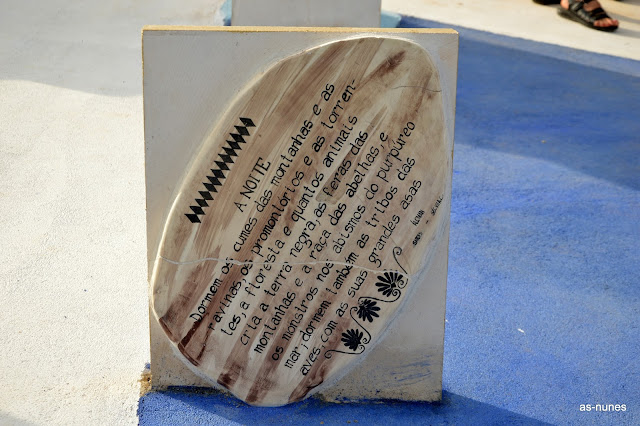 A NOITE
Dormem os cumes das montanhas e as
ravinas, os promontórios e as torren-
tes, a floresta e quantos animais
cria a terra negra, as feras das
montanhas e a raça das abelhas, e
os monstros nos abismos do purpúreo
mar; dormem também as tribos das
aves com as suas grandes asas
as-nunes